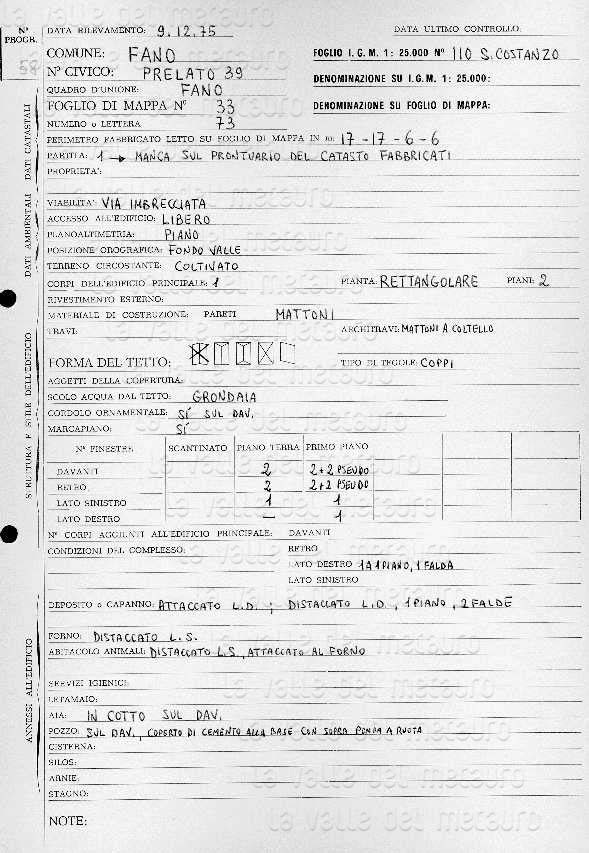 Nº PROGR.
58
DATA RILEVAMENTO: 9.12.75
DATA ULTIMO CONTROLLO:
COMUNE: FANO
FOGLIO I. G. M. 1: 25.000 Nº 110 S. COSTANZO
Nº CIVICO: PRELATO 39
DENOMINAZIONE SU I.G.M. 1: 25.000:
QUADRO D'UNIONE: FANO
FOGLIO DI MAPPA Nº 33
DENOMINAZIONE SU FOGLIO DI MAPPA:
NUMERO o LETTERA 73
PERIMETRO FABBRICATO LETTO SU FOGLIO DI MAPPA IN m: 17-17-6-6
PARTITA: 1 → MANCA SUL PRONTUARIO DEL CATASTO FABBRICATI
PROPRIETA':
DATI CATASTALI
VIABILITA': VIA IMBRECCIATA
ACCESSO ALL'EDIFICIO: LIBERO
PLANOALTIMETRIA: PIANO
POSIZIONE OROGRAFICA: FONDO VALLE
TERRENO CIRCOSTANTE: COLTIVATO
DATI AMBIENTALI
CORPI DELL'EDIFICIO PRINCIPALE: 1
PIANTA: RETTANGOLARE
PIANI: 2
RIVESTIMENTO ESTERNO:
MATERIALE DI COSTRUZIONE: PARETI MATTONI
TRAVI:
ARCHITRAVI: MATTONI A COLTELLO
FORMA DEL TETTO:
TIPO DI TEGOLE: COPPI
AGGETTI DELLA COPERTURA:
SCOLO ACQUA DAL TETTO: GRONDAIA
CORDOLO ORNAMENTALE: SÍ SUL DAV.
MARCAPIANO: SÍ
Nº FINESTRE: SCANTINATO PIANO TERRA PRIMO PIANO
DAVANTI 2 2+2 PSEUDO
RETRO 2 2+2 PSEUDO
LATO SINISTRO 1 1
LATO DESTRO — 1
STRUTTURA E STILE DELL'EDIFICIO
Nº CORPI AGGIUNTI ALL'EDIFICIO PRINCIPALE: DAVANTI
CONDIZIONI DEL COMPLESSO: RETRO
LATO DESTRO 1 A 1 PIANO, 1 FALDA
LATO SINISTRO
DEPOSITO o CAPANNO: ATTACCATO L.D. ; DISTACCATO L.D., 1 PIANO, 2 FALDE
FORNO: DISTACCATO L.S.
ABITACOLO ANIMALI: DISTACCATO L.S., ATTACCATO AL FORNO
SERVIZI IGIENICI:
LETAMAIO:
AIA: IN COTTO SUL DAV.
POZZO: SUL DAV., COPERTO DI CEMENTO ALLA BASE CON SOPRA POMPA A RUOTA
CISTERNA:
SILOS:
ARNIE:
STAGNO:
ANNESSI ALL'EDIFICIO
NOTE:
la valle del metauro